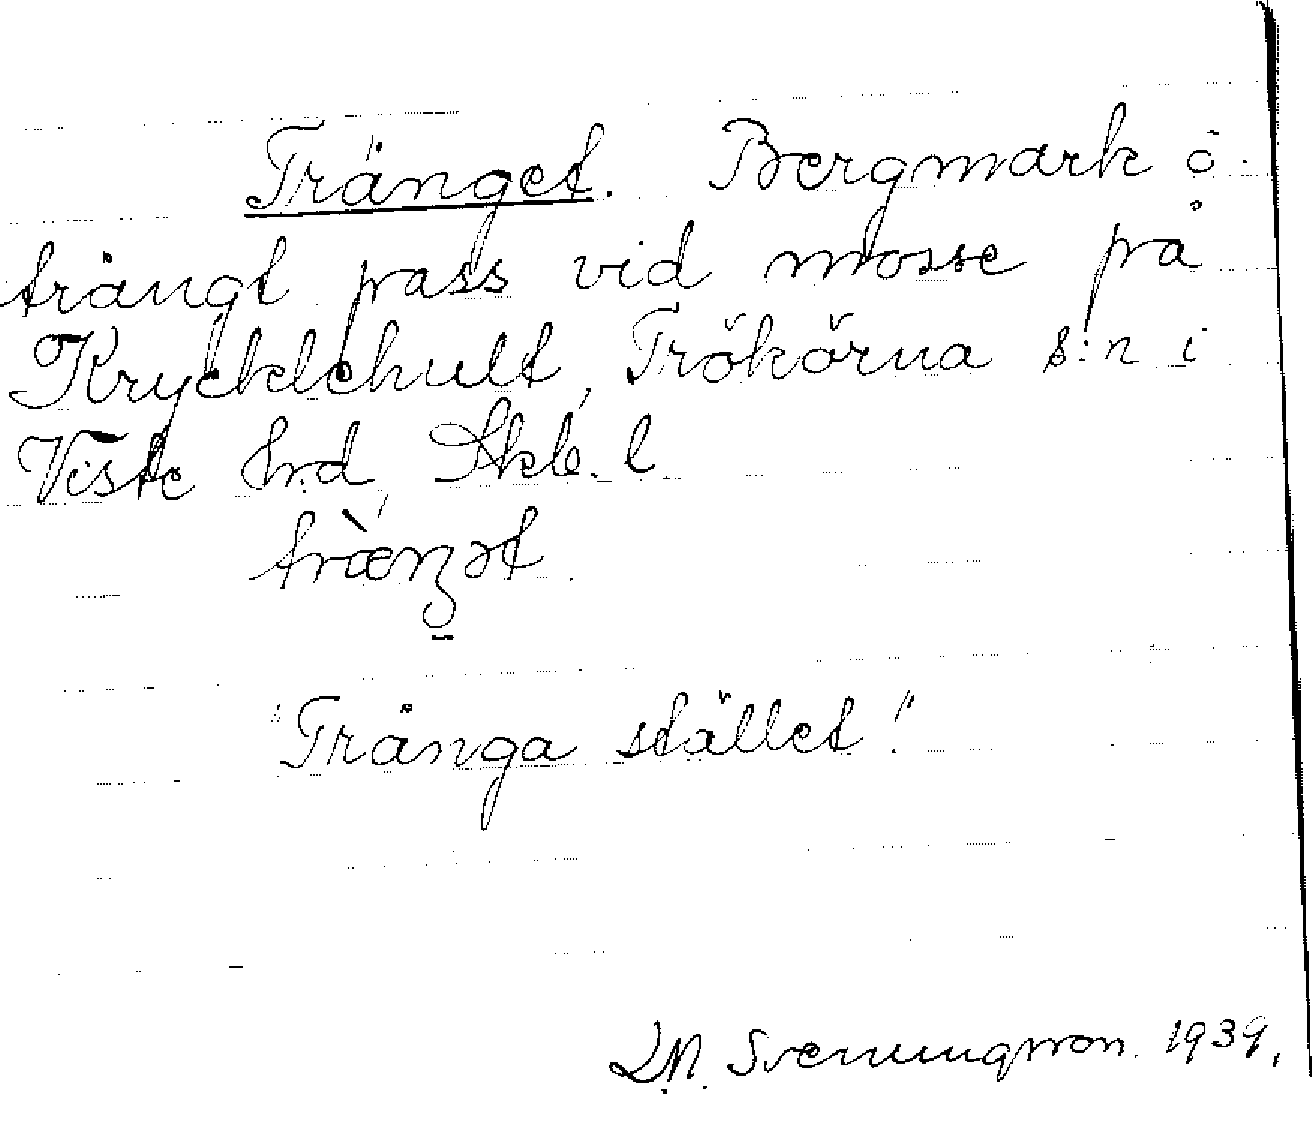 Tränget. Bergmark o.
trångt pass vid mosse på
Krycklehult, Trökörna s:n i
Viste hrd, Skb. l
træ̀nʒət
"Trånga stället!"
D.N. Svenungsson. 1939.